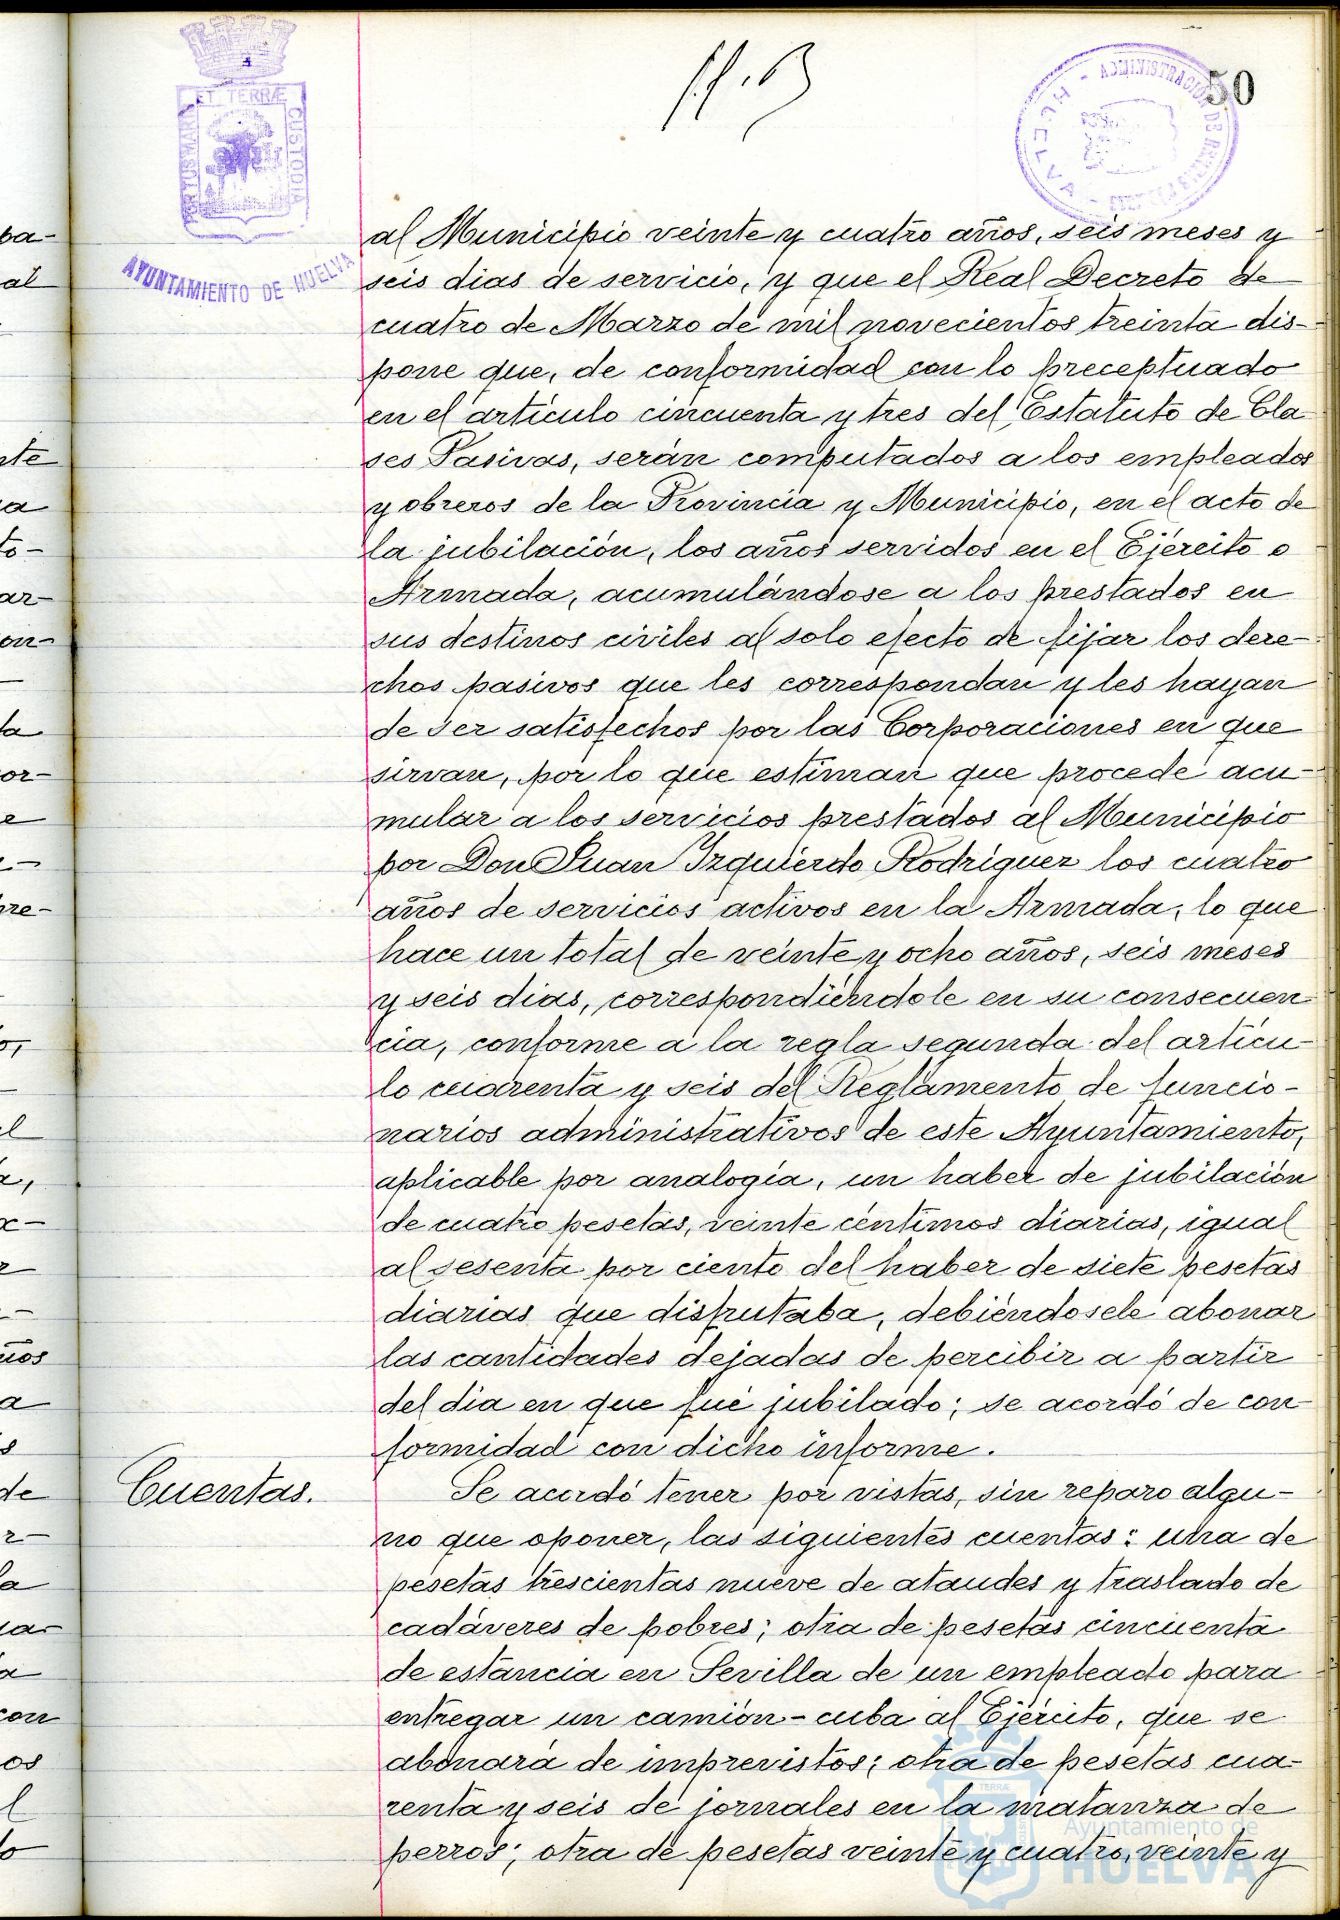 50
PORTUS MARIS ET TERRÆ CUSTODIA
AYUNTAMIENTO DE HUELVA
ADMINISTRACIÓN DE
HUELVA
al Municipio veinte y cuatro años, seis meses y
seis dias de servicio, y que el Real Decreto de
cuatro de Marzo de mil novecientos treinta dis-
pone que, de conformidad con lo preceptuado
en el artículo cincuenta y tres del Estatuto de Cla
ses Pasivas, serán computados a los empleados
y obreros de la Provincia y Municipio, en el acto de
la jubilación, los años servidos en el Ejército o
Armada, acumulándose a los prestados en
sus destinos civiles al solo efecto de fijar los dere-
chos pasivos que les correspondan y les hayan
de ser satisfechos por las Corporaciones en que
sirvan, por lo que estiman que procede acu-
mular a los servicios prestados al Municipio
por Don Juan Izquierdo Rodríguez los cuatro
años de servicios activos en la Armada, lo que
hace un total de veinte y ocho años, seis meses
y seis dias, correspondiéndole en su consecuen
cia, conforme a la regla segunda del artícu-
lo cuarenta y seis del Reglamento de funcio-
narios administrativos de este Ayuntamiento,
aplicable por analogía, un haber de jubilación
de cuatro pesetas, veinte céntimos diarias, igual
al sesenta por ciento del haber de siete pesetas
diarias que disfrutaba, debiéndosele abonar
las cantidades dejadas de percibir a partir
del dia en que fué jubilado; se acordó de con-
formidad con dicho informe.
Cuentas.
Se acordó tener por vistas, sin reparo algu-
no que oponer, las siguientes cuentas: una de
pesetas trescientas nueve de ataudes y traslado de
cadáveres de pobres; otra de pesetas cincuenta
de estancia en Sevilla de un empleado para
entregar un camión-cuba al Ejército, que se
abonará de imprevistos; otra de pesetas cua-
renta y seis de jornales en la matanza de
perros; otra de pesetas veinte y cuatro, veinte y
Ayuntamiento de
HUELVA